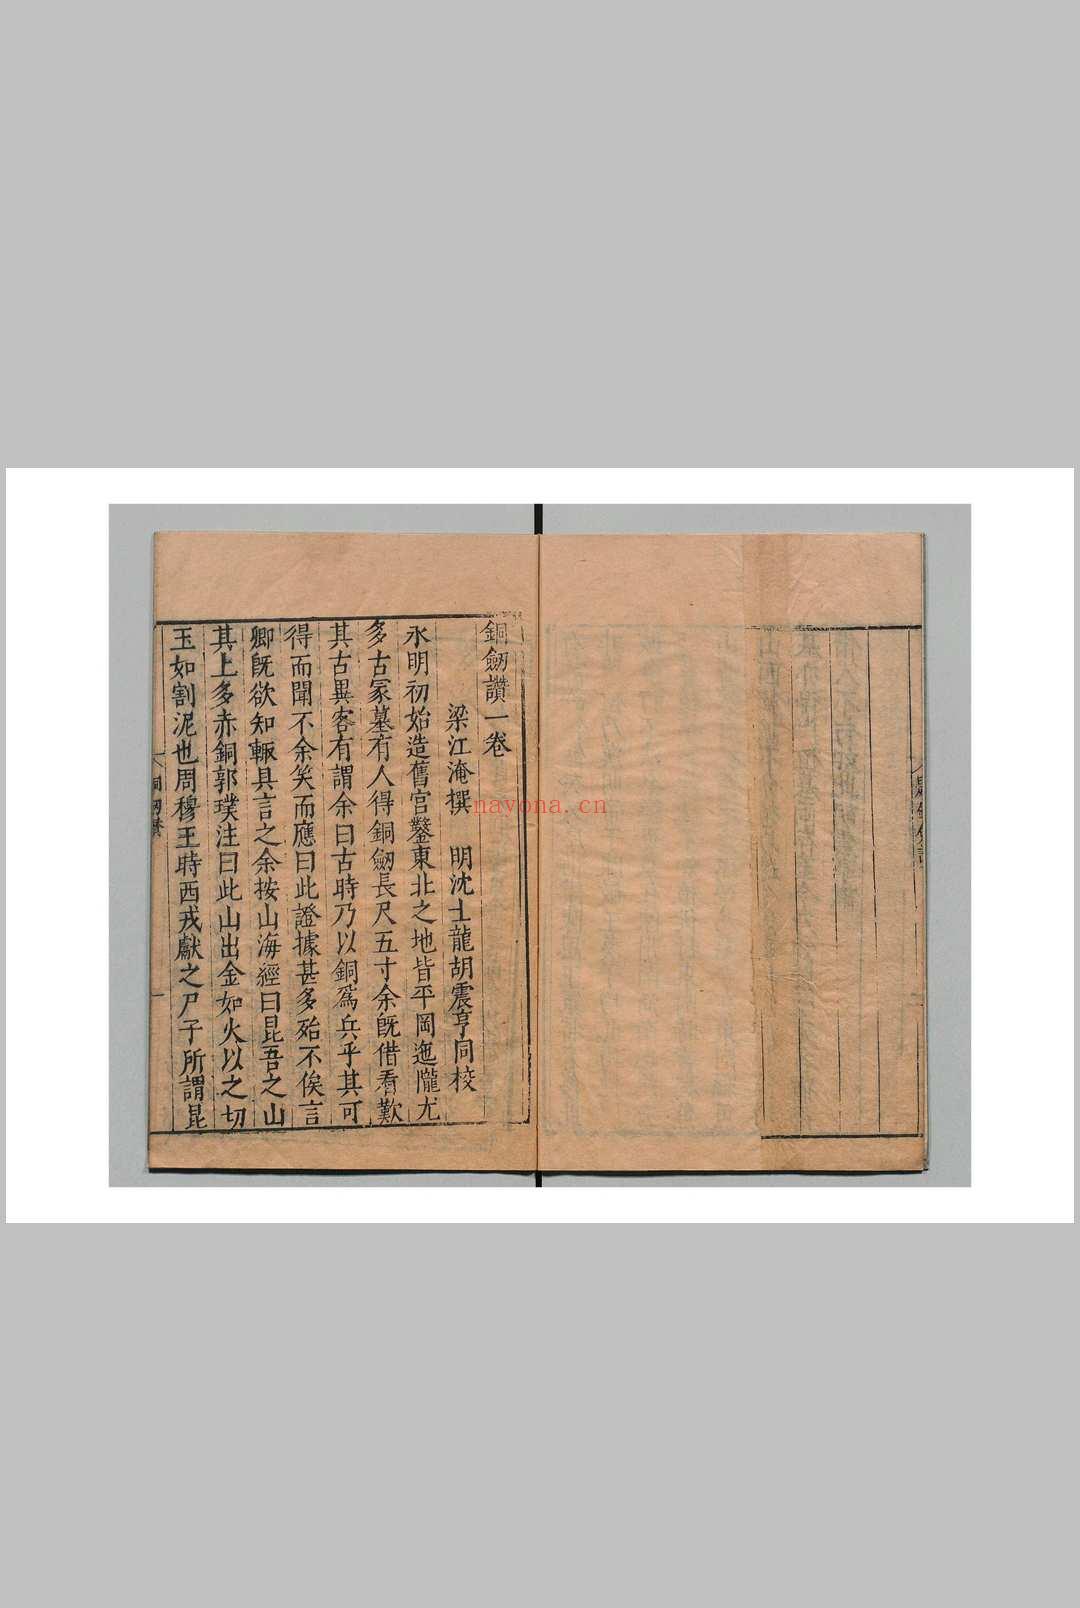 銅劒讚一卷
梁江淹撰 明沈士龍胡震亨同校
永明初始造舊宮鑿東北之地皆平岡迤隴尤
多古冢墓有人得銅劒長尺五寸余旣借看歎
其古異客有謂余曰古時乃以銅爲兵乎其可
得而聞不余笑而應曰此證據甚多殆不俟言
卿旣欲知輒具言之余按山海經曰昆吾之山
其上多赤銅郭璞注曰此山出金如火以之切
玉如割泥也周穆王時西戎獻之尸子所謂昆
navona.cn